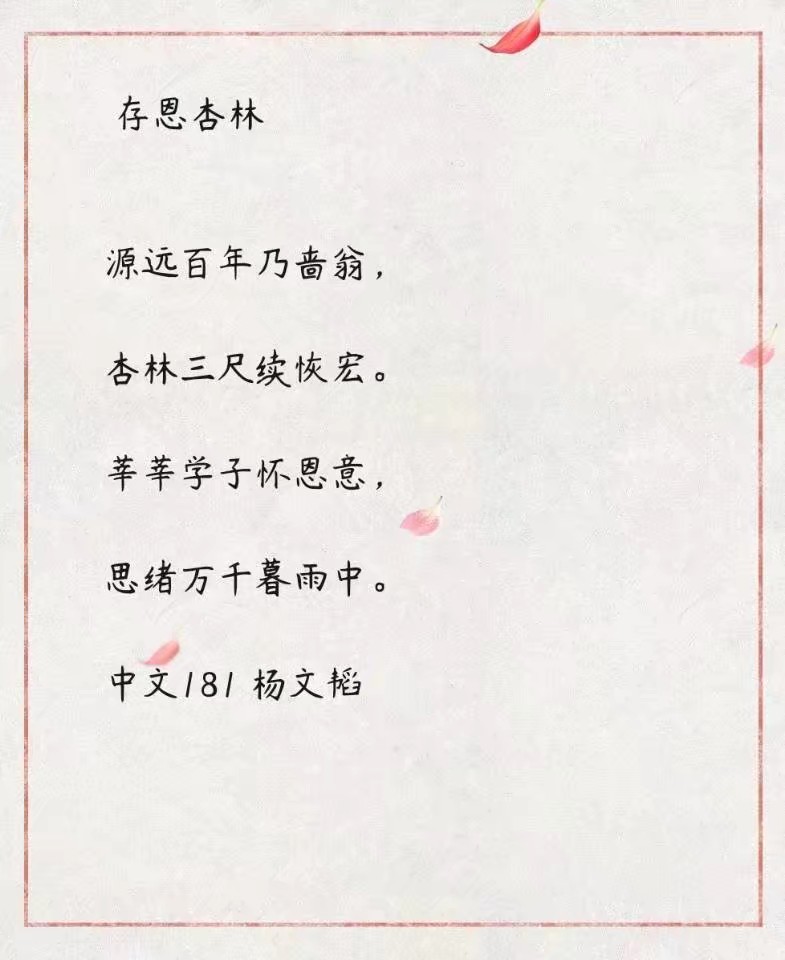 存恩杏林
源远百年乃啬翁，
杏林三尺续恢宏。
莘莘学子怀恩意，
思绪万千暮雨中。
中文181 杨文韬